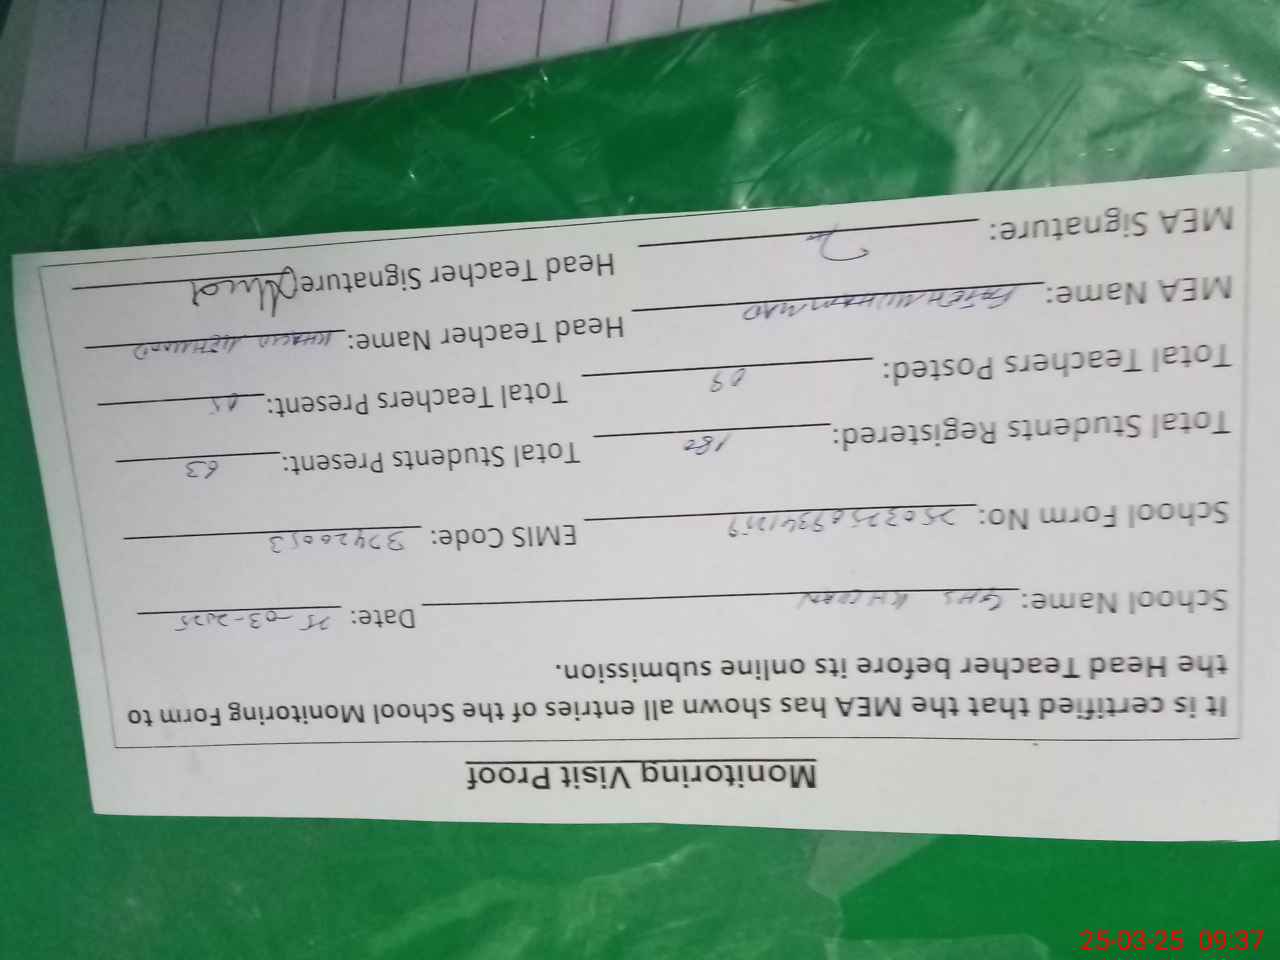 Monitoring Visit Proof
It is certified that the MEA has shown all entries of the School Monitoring Form to
the Head Teacher before its online submission.
School Name: GHS Date: 25-03-2025
School Form No: EMIS Code: 37420053
Total Students Registered: 180 Total Students Present: 63
Total Teachers Posted: 09 Total Teachers Present: 05
MEA Name: FATEH MUHAMMAD Head Teacher Name: KHALID MEHMOOD
MEA Signature: Head Teacher Signature
25-03-25 09:37